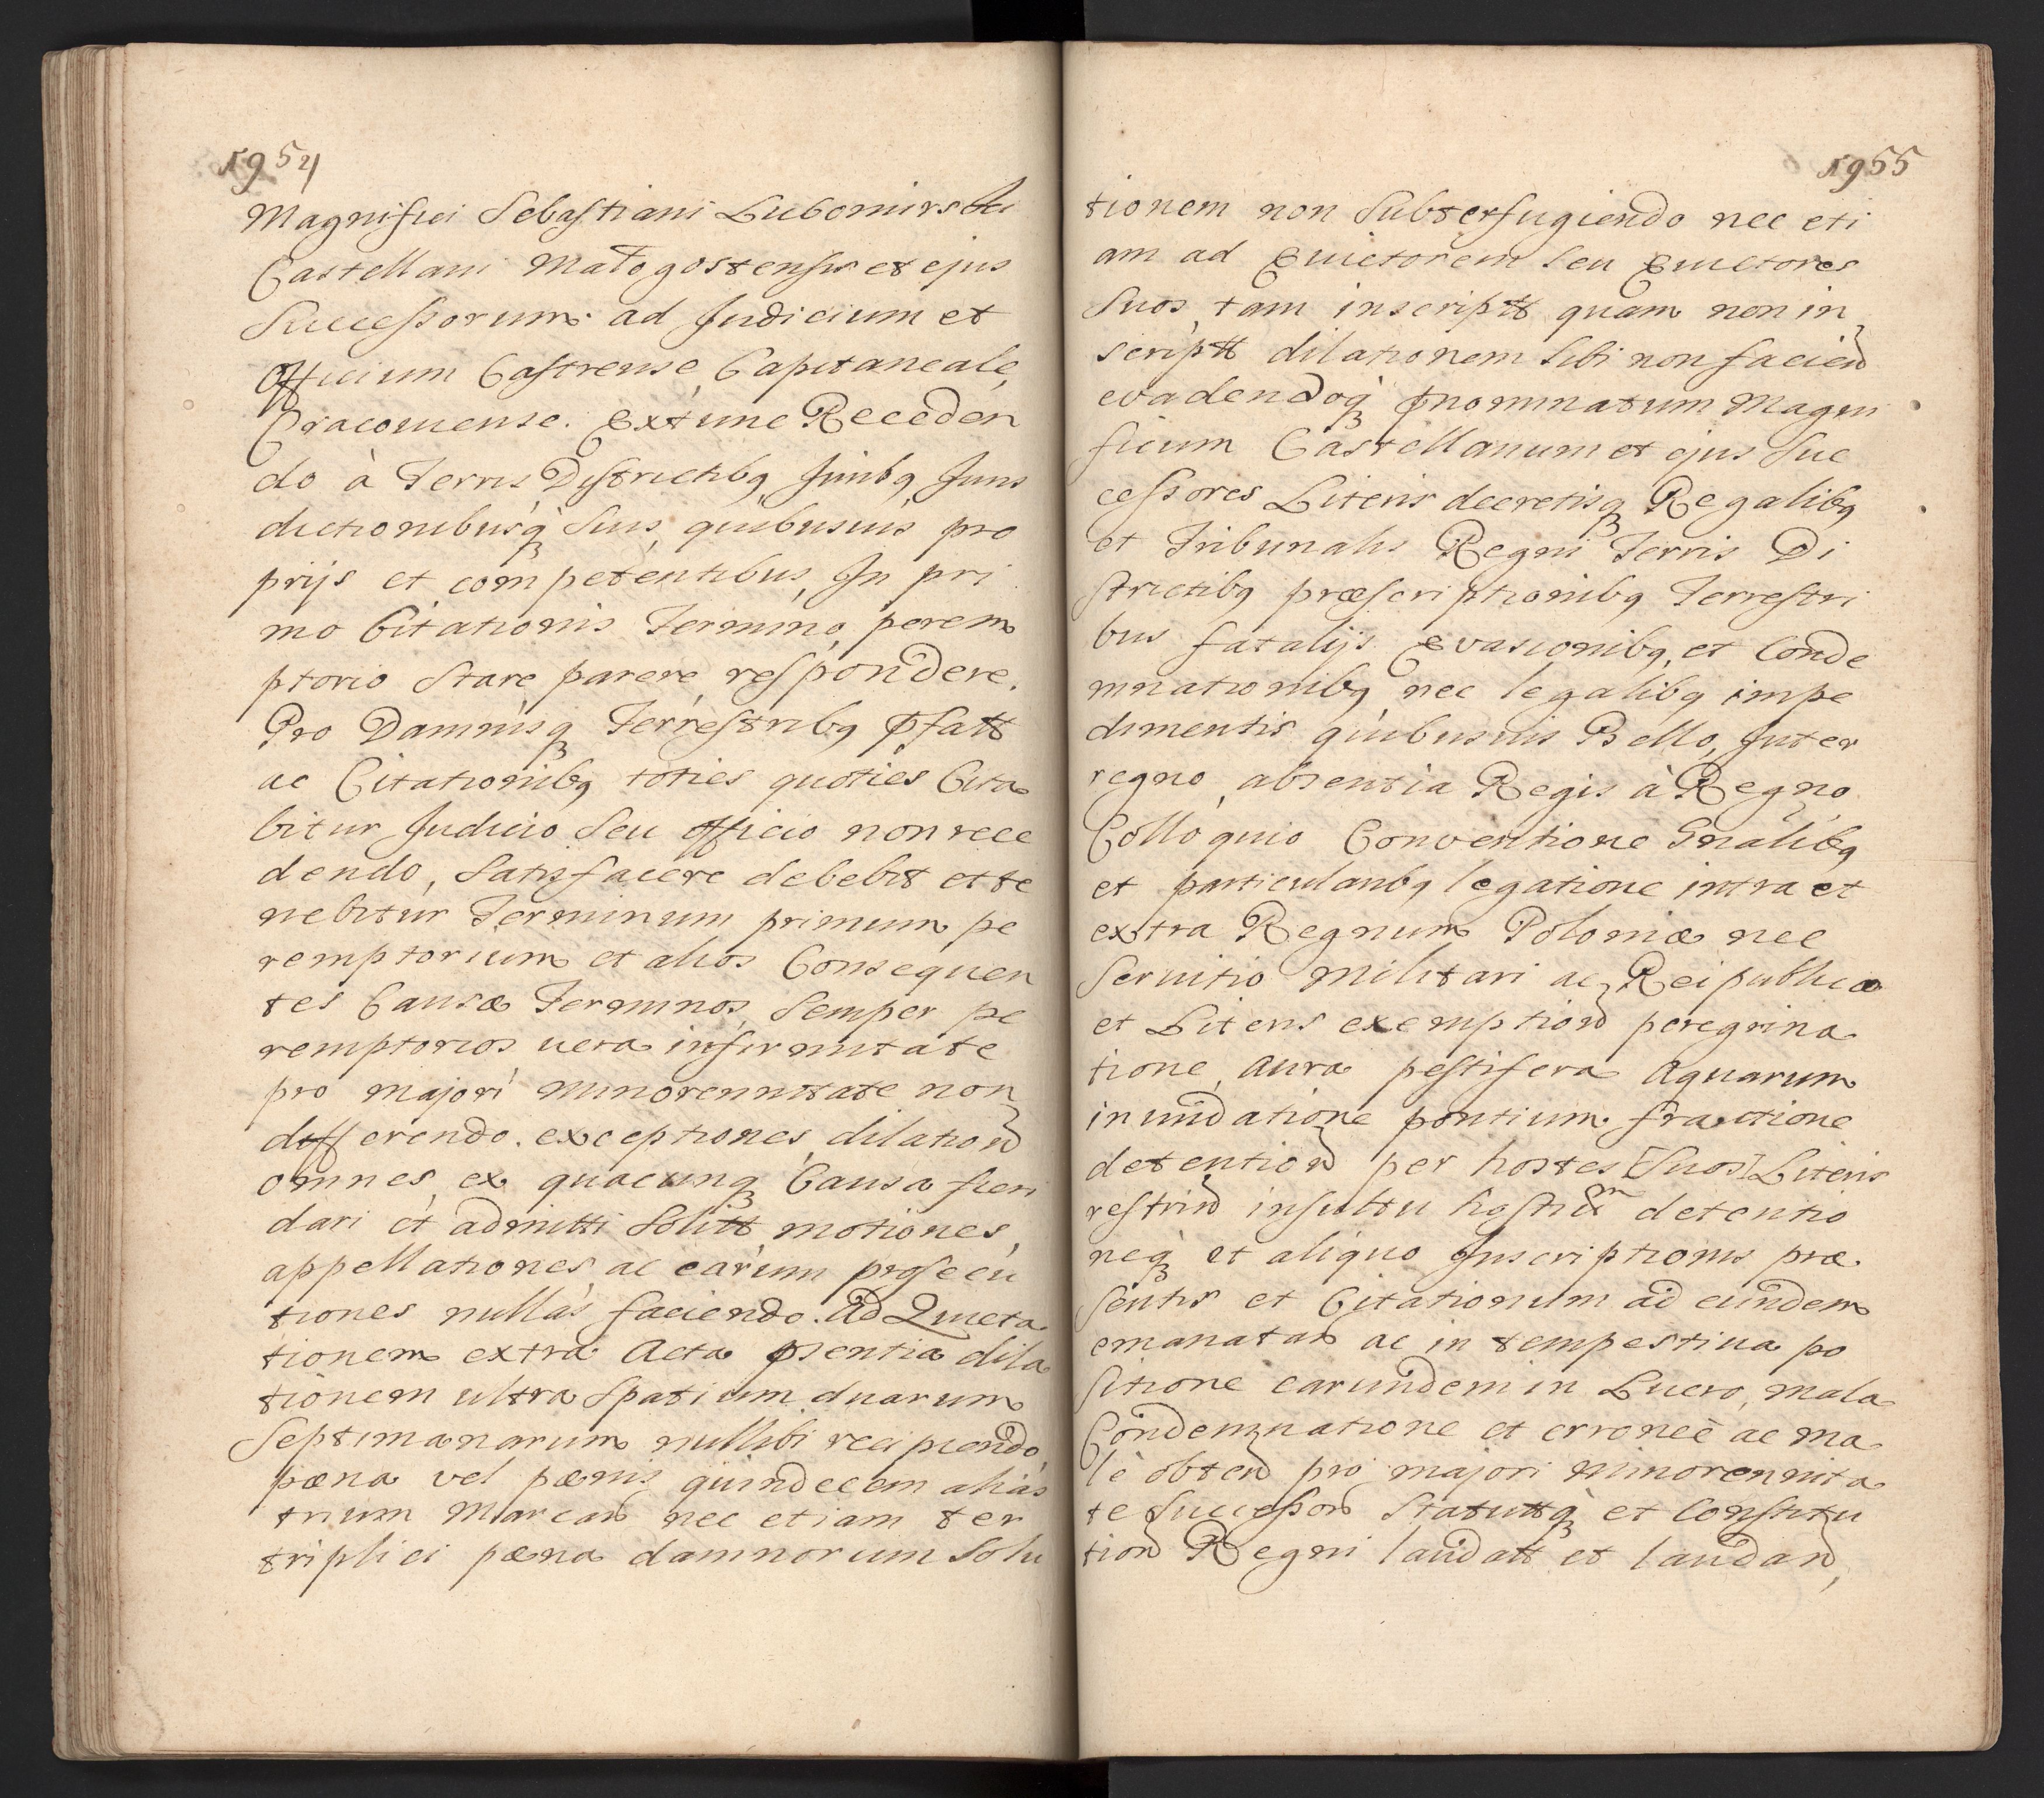 1954
Magnifici Sebastiani Lubomirski
Castellani Małogostensis et ejus
Successorum ad Judicium et
Officium Castrense Capitaneale
Cracoviense. Extunc Receden
do à Terris Districtibq Juribq Juris
dictionibusq Suis quibusuis pro
prijs et competentibus, In pri
mo Citationis Termino perem
ptorio Stare parere respondere.
Pro Damnisq Terrestribq pfatt
ac Citationibq toties quoties Cita
bitur Judicio Seu officio non rece
dendo, Satisfacere debebit et te
nebitur Terminum primum pe
remptorium et alios Consequen
tes Causæ Terminos, Semper pe
remptorios uera infirmitate
pro majori minorennitate non
differendo. exceptiones dilation
omnes ex quacunq Causa fieri
dari et admitti Solitt motiones,
appellationes ac earum prosecu
tiones nullas faciendo. Ad Quieta
tionem extra Acta psentia dila
tionem ultra Spatium duarum
Septimanarum nullibi recipiendo,
pæna vel pænis quindecem aliàs
trium Marcar nec etiam ter
triplici pæna damnorum Solu
1955
tionem non Subterfugiendo nec eti
am ad Euictorem Seu Euictores
Suos, tam inscriptt quam non in
scriptt dilationem Sibi non faciend
evadendoq pnominatum Magni
ficum Castellanum et ejus Suc
cessores Literis decretisq Regalibq
et Tribunalis Regni Terris Di
strictibq præscriptionibq Terrestri
bus fatalijs Evasionibq, et Conde
mnationibq nec legalibq impe
dimentis quibusuis Bello, Inter
regno, absentia Regis à Regno
Colloquio Conventione Gnalibq
et particularibq legatione intra et
extra Regnum Poloniæ nec
Seruitio Militari ac Reipublicæ
et Literis exemption peregrina
tione, aura pestifera Aquarum
inundatione pontium fractione
detention per hostes [Suos] Literis
restrind insultu hostium detentio
neq et aliquo Inscriptionis præ
sentis et Citationum ad eundem
emanatar ac in tempestiua po
sitione earundem in Lucro, mala
Condemnatione et erroneè ac ma
lè obtend pro majori Minorennita
te Successor Statuttq et Constitu
tion Regni laudatt et laudand,